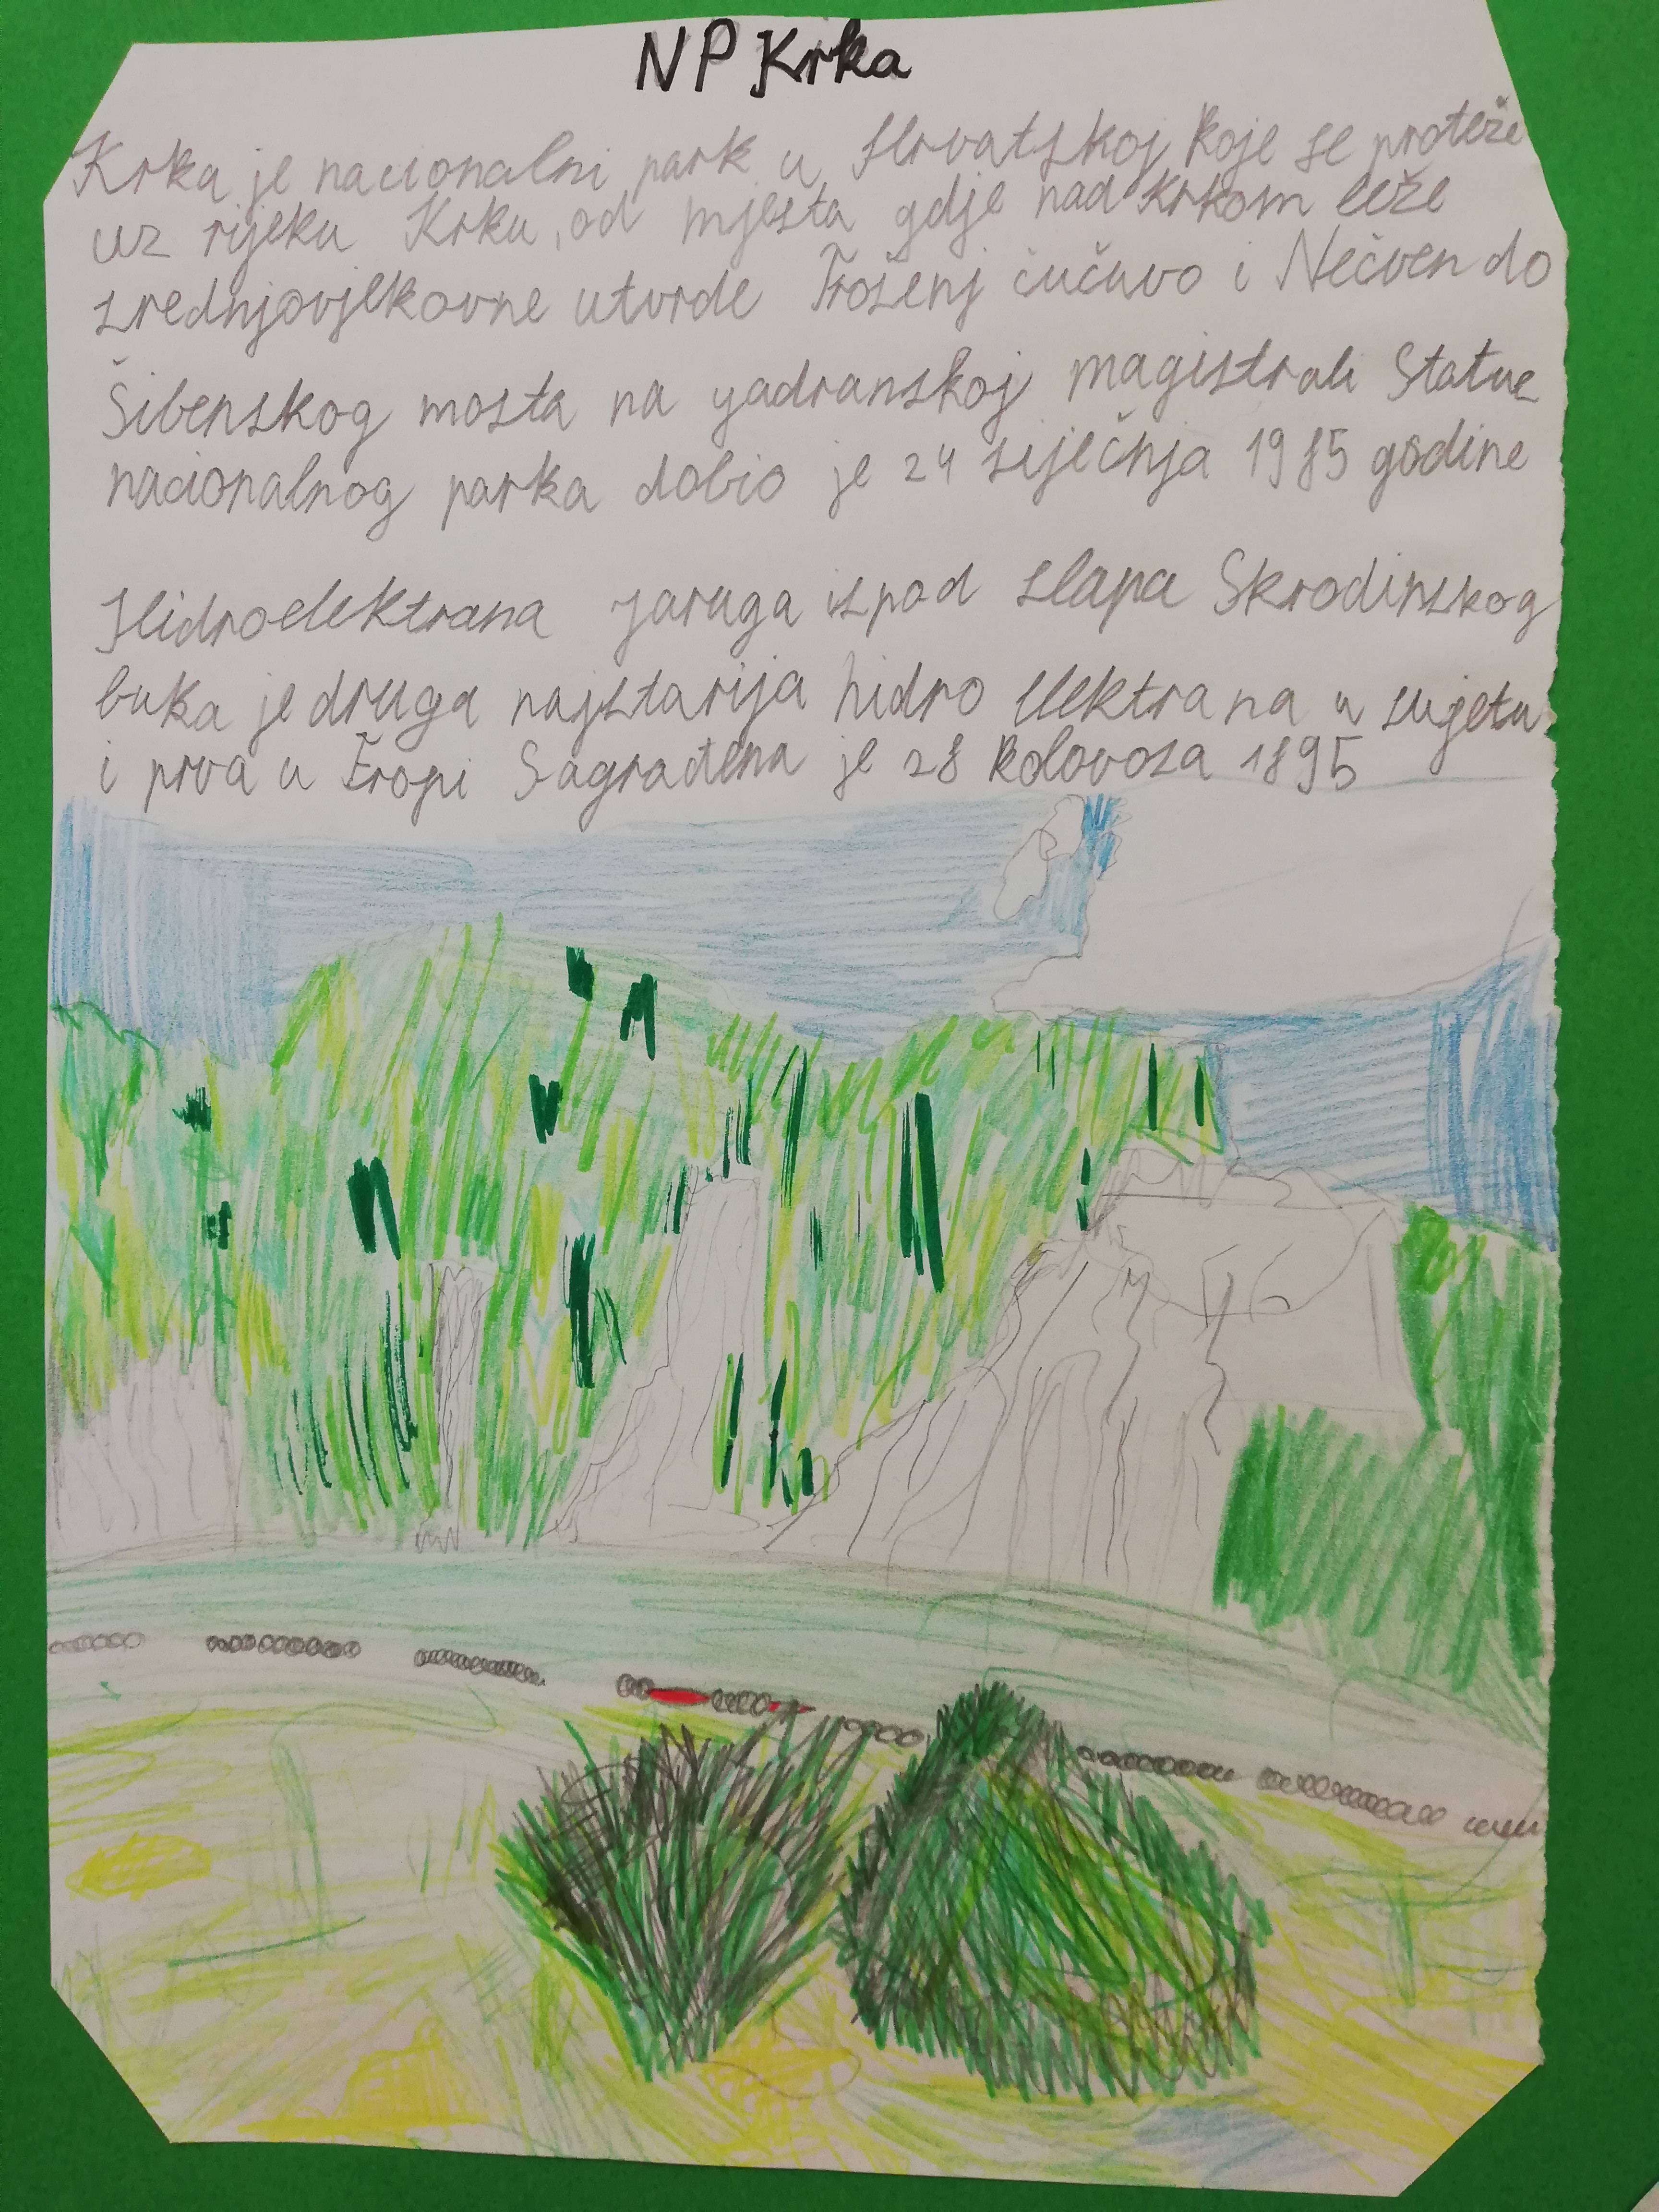 NP Krka
Krka je nacionalni park u Hrvatskoj koje se proteže
uz rijeku Krku, od mjesta gdje nad Krkom leže
srednjovjekovne utvrde Trošenj čučuvo i Nečven do
Šibenskog mosta na jadranskoj magistrali Status
nacionalnog parka dobio je 24 siječnja 1985 godine
Hidroelektrana jaruga ispod slapa Skrodinskog
buka je druga najstarija hidro elektrana u svijetu
i prva u Eropi Sagrađena je 28 kolovoza 1895